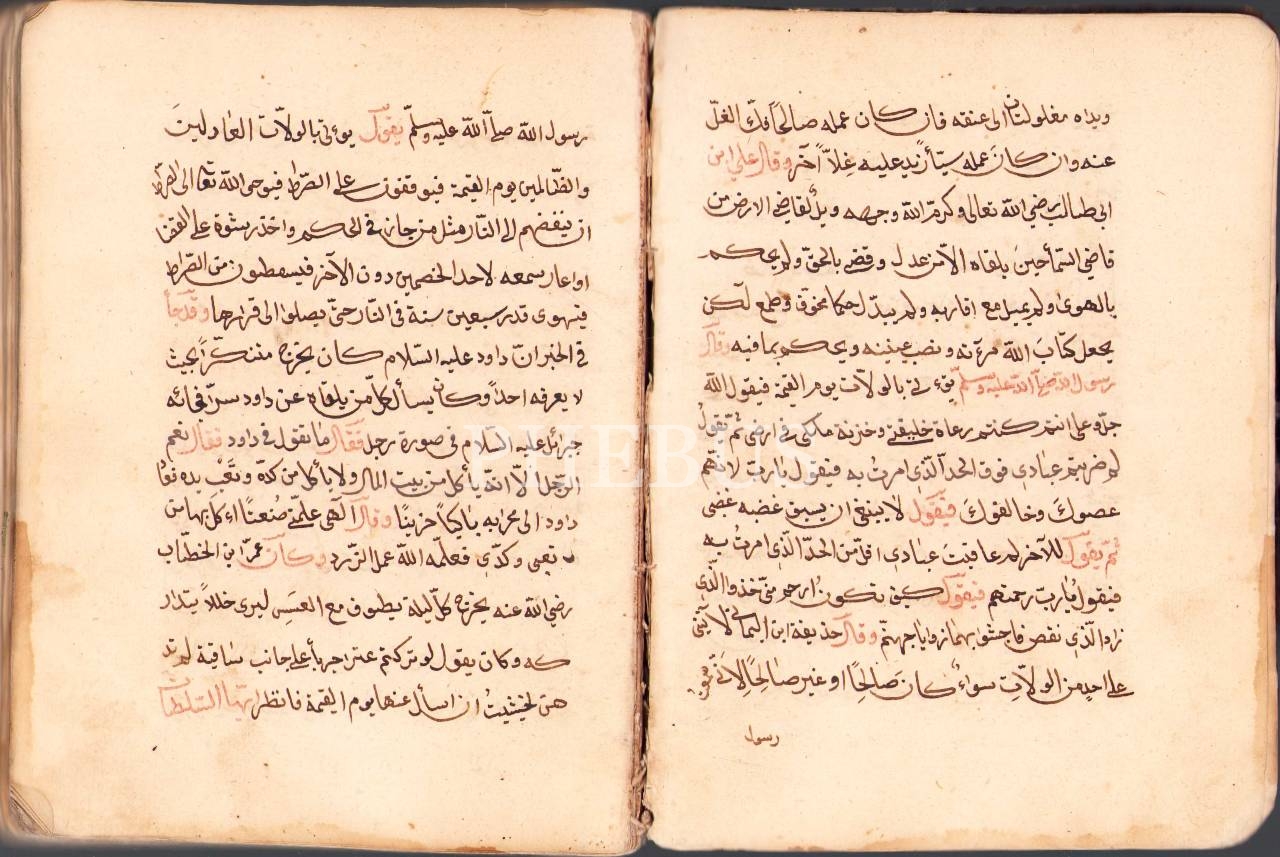 ويداه مغلولتان الى عنقه فان كان عمله صالحاً فك الغلّ
عنه وان كان عمله سيئاً زيد عليه غِلاًّ آخر وقال علي ابن
ابى طالب رضي الله تعالى وكرم الله وجهه ويلٌ لقاضي الارض من
قاضي السّمأ حين يلقاه الاّ من عدل وقضى بالحق ولم يحكم
بالهوى ولم يميل مع اقاربه ولم يبدّل حكما لخوف وطمع لكن
يجعل كتاب الله مرءته ونصب عينه ويحكم بما فيه وقال
رسول الله صلىّ الله عليه وسلّم يؤتى بالولات يوم القيمة فيقول الله
جلّ وعلى انتم كنتم رعاة خليقتي وخزنة ملكي في ارضي ثم يقول
لم ضربتم عبادى فوق الحد الّذى امرتُ به فيقول يا ربّ لانّهم
عصوك وخالفوك فيقول لا ينبغي ان يسبق غضبه غضبي
ثم يقول للآخر لم عاقبت عبادى اقلّ من الحدّ الّذي امرتُ به
فيقول يا ربّ رحمتهم فيقول كيف تكونُ ارحم منّي خذوا الّذي
زاد والّذي نقص فاحشوا بهما زوايا جهنّم وقال حذيفة ابن اليماني لا يثني
على احدٍ من الولات سواءٌ كان صالحًا او غير صالحًا لاَنّي سمعت
رسول
رسول الله صلىّ الله عليه وسلّم يقول يوءتى بالولات العادلين
والظّالمين يوم القيمة فيوقفون على الصّراط فيوحى الله تعالى الى الصّراط
ان ينفضهم الى النّار مثل من جاز في الحكم واخذ رشوة على القضا
او اعار سمعه لاحد الخصمين دون الآخر فيسقطون من الصّراط
فيهوى قدر سبعين سنة في النّار حتىّ يصلوا الى قرارها وقد جأ
في الخبر انّ داود عليه السّلام كان يخرج متنكّراً بحيث
لا يعرفه احداً وكان يسأل كلّ من يلقاه عن داود سرّا فجائه
جبرائل عليه السّلام في صورة رجل فقال ما تقول في داود فقال نعم
الرّجل الاّ انّه يأكل من بيت المال ولا يأكل من كدّه وتعب يده فعاد
داود الى محرابه باكياً حزينًا وقال الهى علّمني صُنعتًا اءكل بها من
تعبي وكدّى فعلّمه الله عمل الزّرد وكان عمر ابن الخطّاب
رضي الله عنه يخرج كلّ ليلة يطوف مع العسس ليرى خللاً يتدار
كه وكان يقول لو تركتم عنزا جربأ على جانب ساقية لم تد
هن لخشيتُ ان اسأل عنها يوم القيمة فانظر ايّها السّلطان
PHEBUS